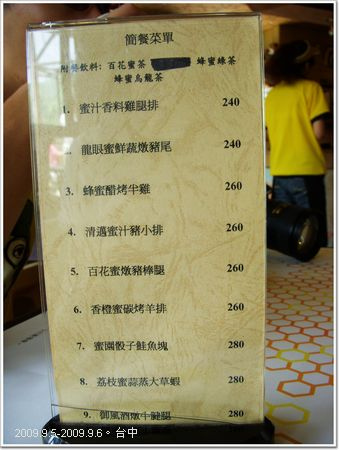 簡餐菜單
附餐飲料: 百花蜜茶 蜂蜜綠茶
蜂蜜烏龍茶
1. 蜜汁香料雞腿排 240
龍眼蜜鮮蔬燉豬尾 240
3. 蜂蜜醋烤半雞 260
4. 清邁蜜汁豬小排 260
5. 百花蜜燉豬棒腿 260
6. 香橙蜜碳烤羊排 260
7. 蜜園骰子鮭魚塊 280
8. 荔枝蜜蒜蒸大草蝦 280
9. 御風酒燉牛腱腿 280
2009.9.5-2009.9.6。台中